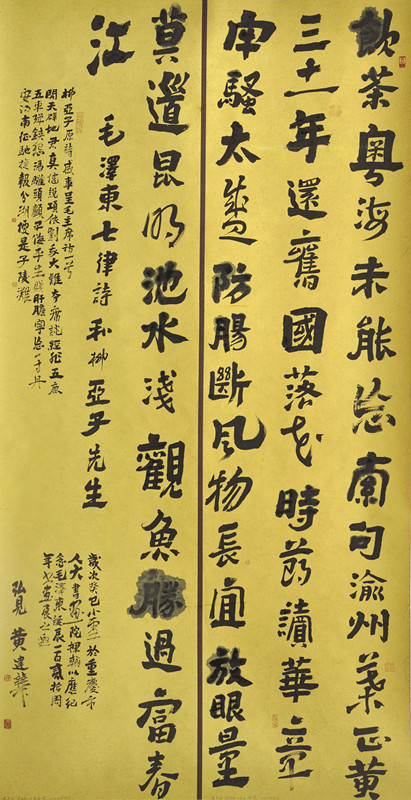 飲茶粵海未能忘索句渝州葉正黃
三十一年還舊國落花時節讀華章
牢騷太盛防腸斷風物長宜放眼量
莫道昆明池水淺觀魚勝過富春
江
毛澤東七律詩和柳亞子先生
柳亞子原詩感事呈毛主席詩一首
開天辟地君真健說項依劉我大難夺席談經非五鹿
无車彈鋏怨馮驩頭顱早悔平生賤肝膽寧忘一寸丹
安得南征馳捷報分湖便是子陵灘
歲次癸巳小雪於重慶市
人大書畫院揮翰以應紀
念毛澤東誕辰一百貳拾周
年書畫展之邀
弘見 黃建